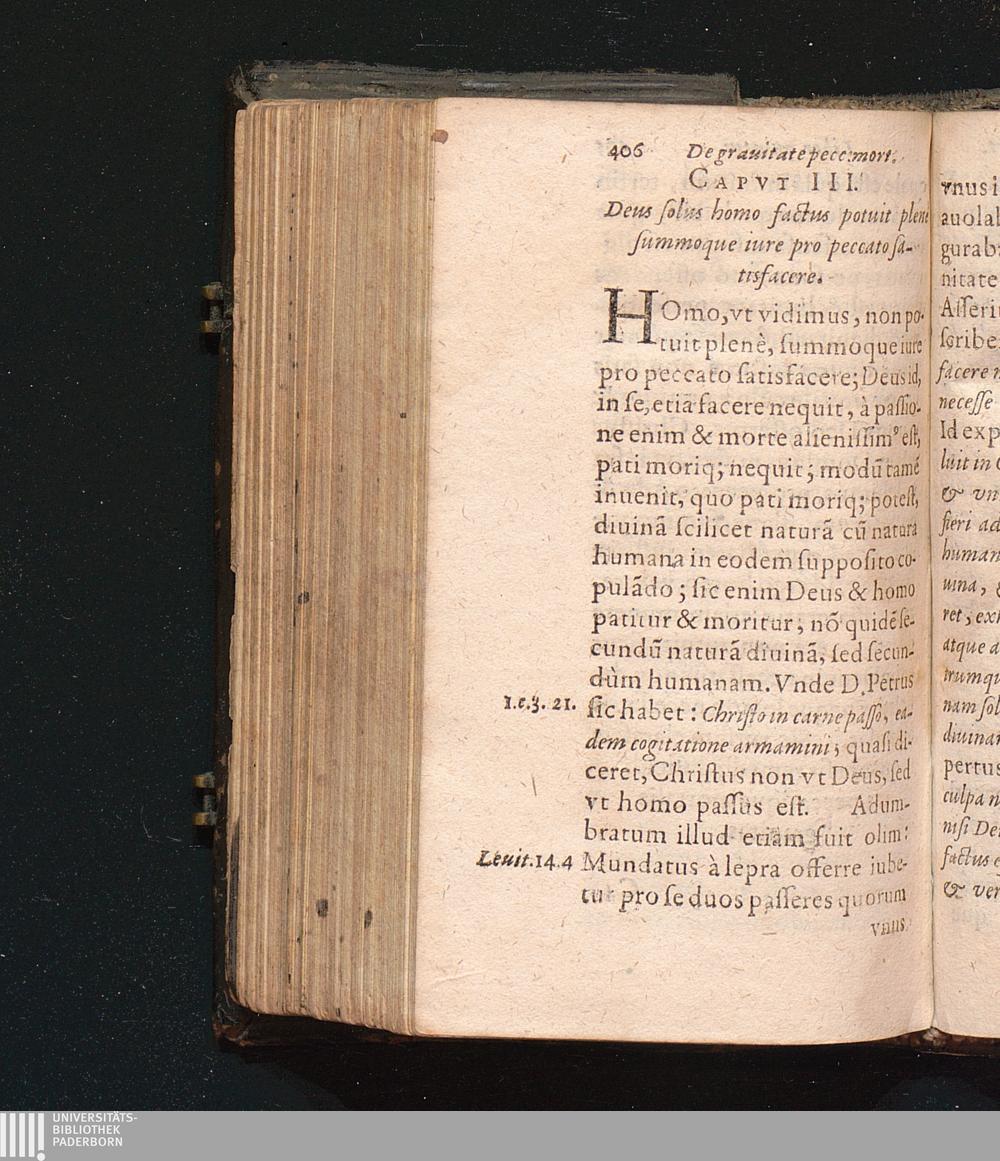 406 De grauitate pecc: mort.
CAPVT III.
Deus ſolus homo factus potuit plene
ſummoque iure pro peccato ſa-
tisfacere.
HOmo, vt vidimus, non po-
tuit plenè, ſummoque iure
pro peccato ſatisfacere; Deus id,
in ſe, etiã facere nequit, à paſſio-
ne enim & morte alieniſſimꝰ eſt,
pati moriq; nequit; modũ tamẽ
inuenit, quo pati moriq; poteſt,
diuinã ſcilicet naturã cũ natura
humana in eodem ſuppoſito co-
pulãdo; ſic enim Deus & homo
patitur & moritur; nõ quidẽ ſe-
cundũ naturã diuinã, ſed ſecun-
dùm humanam. Vnde D. Petrus
1.c.3. 21. ſic habet: Chriſto in carne paſſo, ea-
dem cogitatione armamini; quaſi di-
ceret, Chriſtus non vt Deus, ſed
vt homo paſſus eſt. Adum-
bratum illud etiam fuit olim:
Leuit. 14. 4 Mundatus à lepra offerre iube-
tur pro ſe duos paſſeres quorum
vnus
vnus i
auolal
gurab
nitate
Aſſeri
ſcribe
facere n
neceſſe
Id exp
luit in
& vn
fieri ad
human
uina,
ret, ex
atque a
trumqu
nam ſol
diuinar
pertus
culpa n
niſi De
factus
& ver
UNIVERSITÄTS-
BIBLIOTHEK
PADERBORN